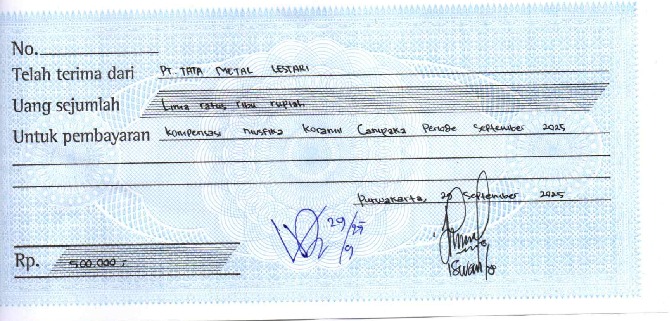 No.
Telah terima dari PT. TATA METAL LESTARI
Uang sejumlah Lima ratus ribu rupiah
Untuk pembayaran Kompensasi Koramil Campaka Periode September 2025
Purwakarta, 29 September 2025
29/25
9
Rp. 500.000